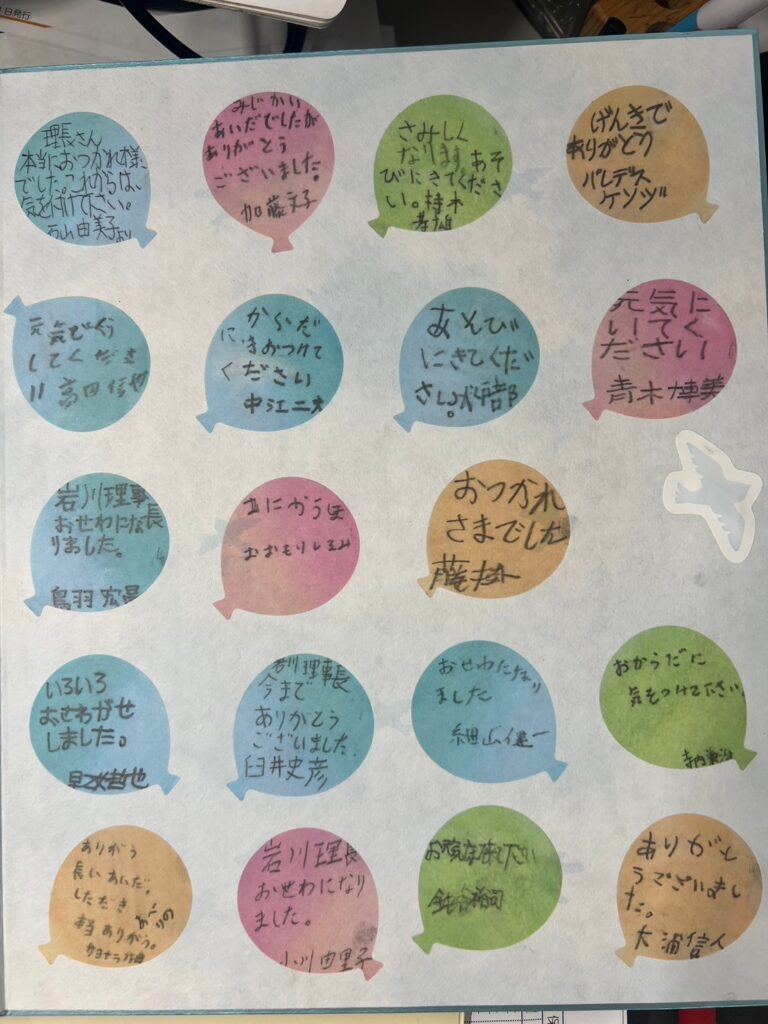 日発行
理長さん
本当におつかれ様
でした。これからは、
気を付けて下さい。
石山由美子より
みじかい
あいだでしたが
ありがとう
ございました。
加藤文子
さみしく
なります あそ
びにきてくださ
い。
げんきで
ありがとう
パレデス
ケンヅ
してくださ
高田信也
からだ
にきおつけて
ください
中江二大
あそびに
にきてくだ
さい。
元気に
いてく
ださい
青木博美
岩川理事長
おせわにな
りました。
鳥羽宏
おつかれ
さまでした
いろいろ
おせわがせ
しました。
哲也
岩川理事長
今まで
ありがとう
ございました
臼井史彦
おせわになり
ました
細山健一
おからだに
気をつけて下さい。
寺内
ありがう
長いあいだ。
したださ
本当ありがう。
岩川理長
おせわになり
ました。
小川由里子
ありがと
うございまし
た。
大浦信人